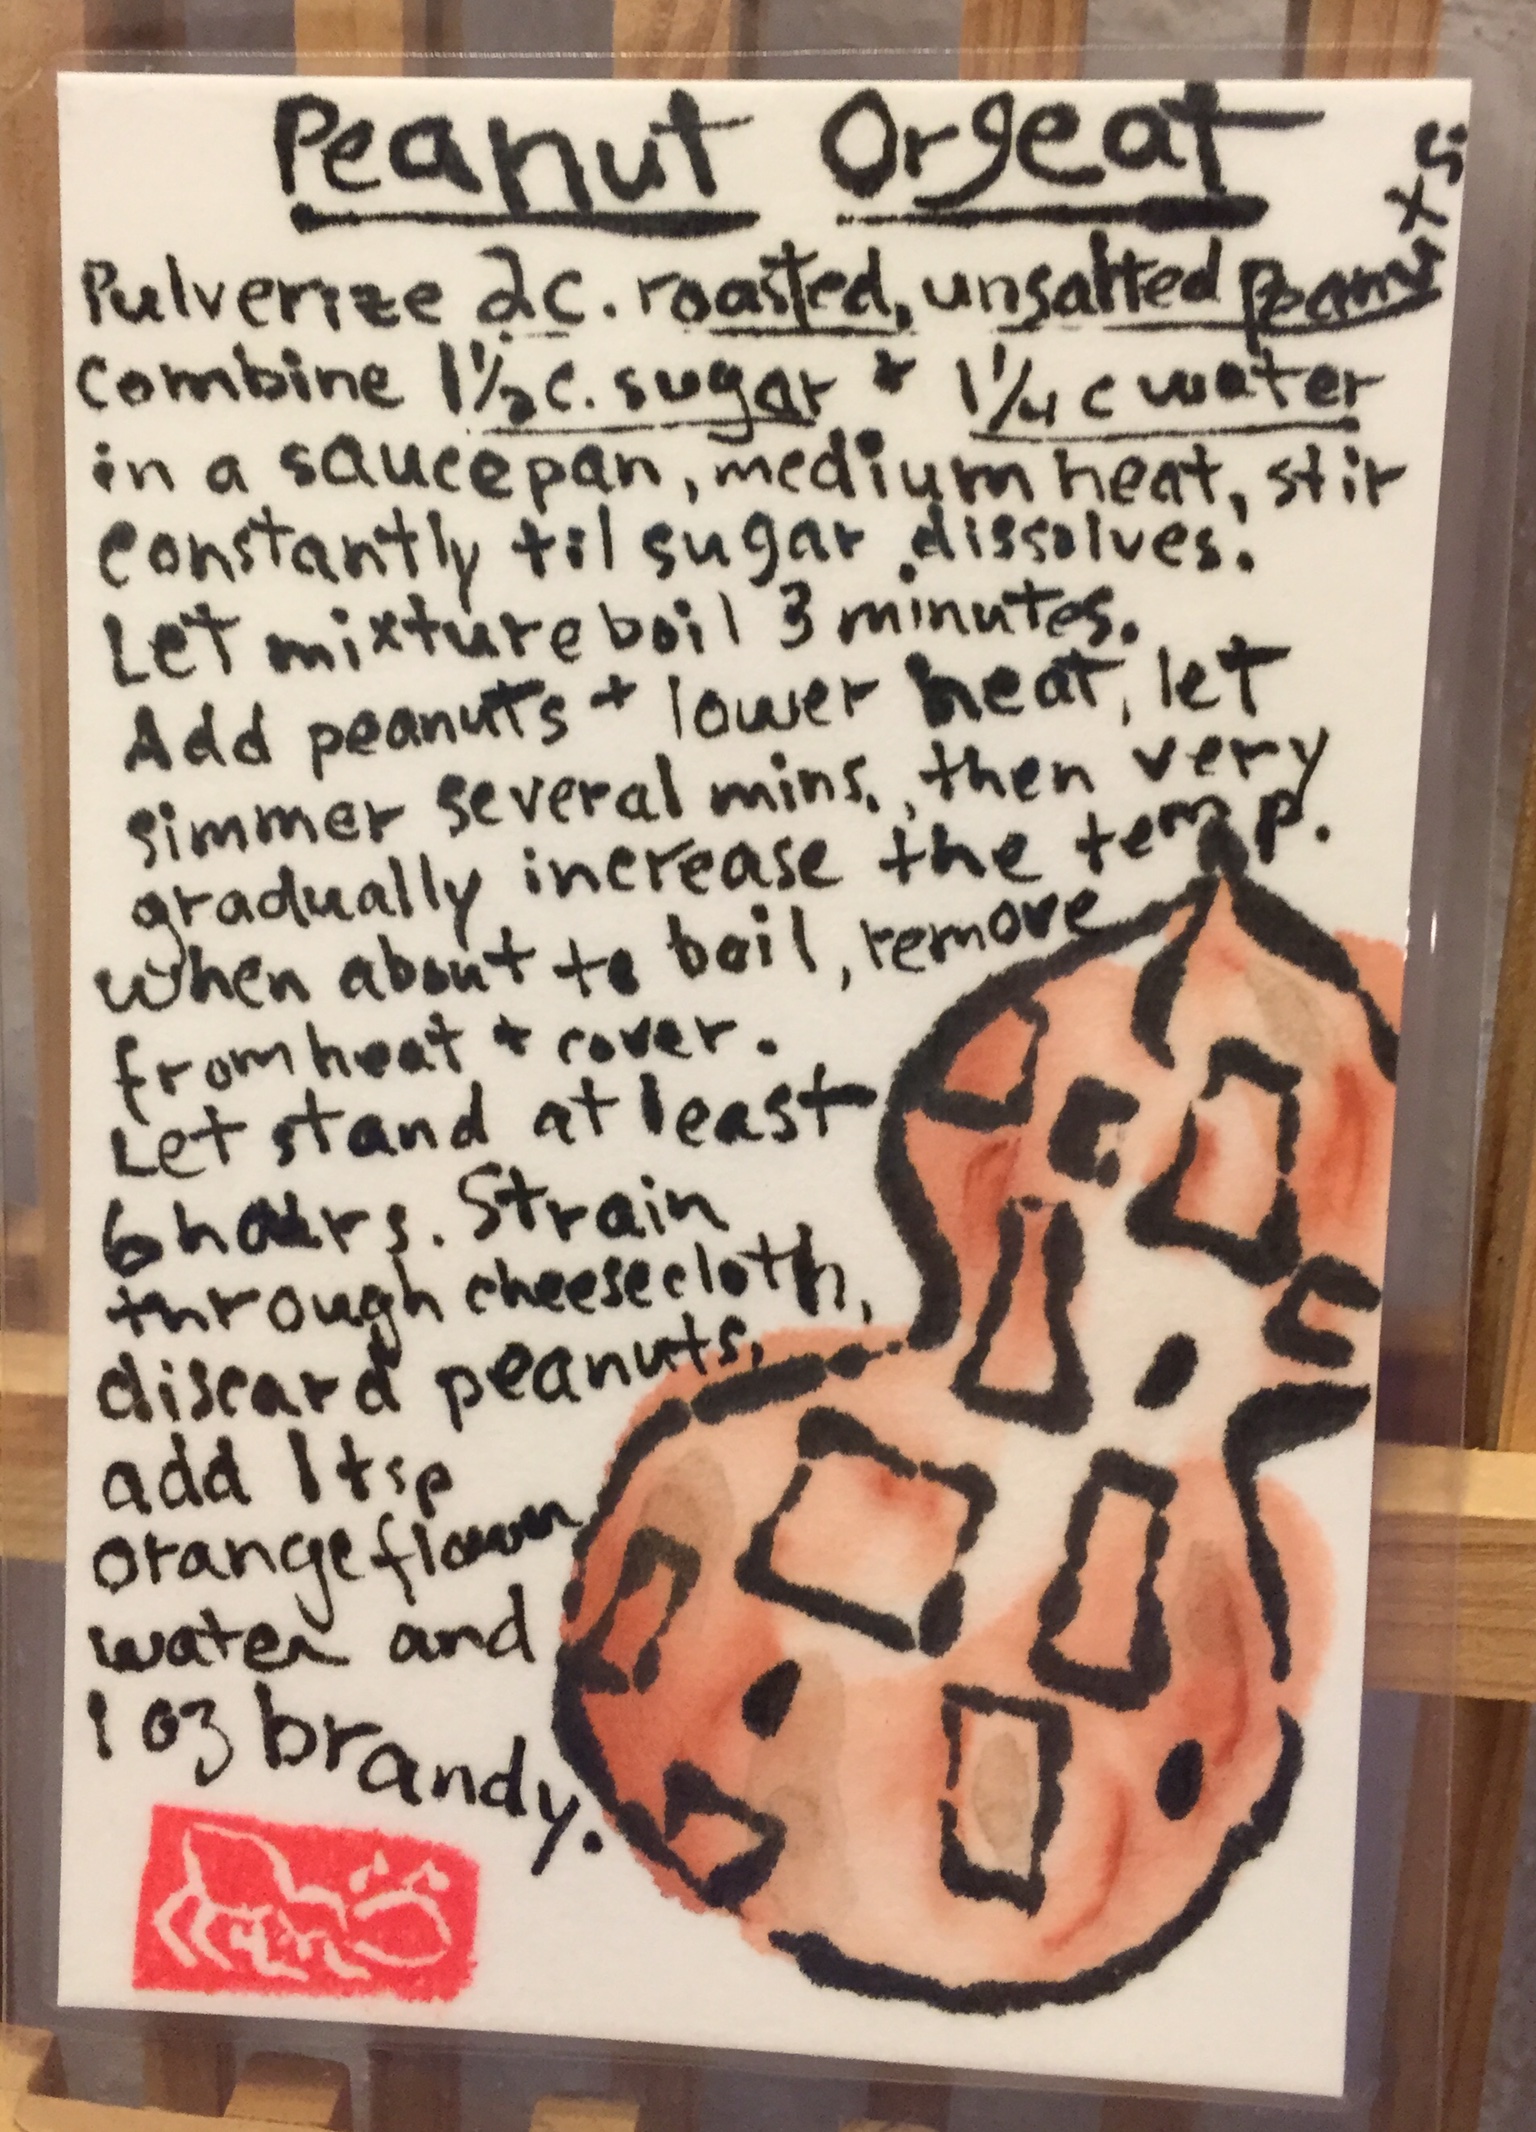 Peanut Orgeat
Pulverize 2c. roasted, unsalted
Combine 1 1/2 c. sugar + 1 1/4 c water
in a saucepan, medium heat, stir
constantly til sugar dissolves.
Let mixture boil 3 minutes.
Add peanuts + lower heat, let
simmer several mins., then very
gradually increase the temp.
When about to boil, remove
from heat + cover.
Let stand at least
6 hours. Strain
through cheesecloth,
discard peanuts,
add 1 tsp
orange flower
water and
1 oz brandy.